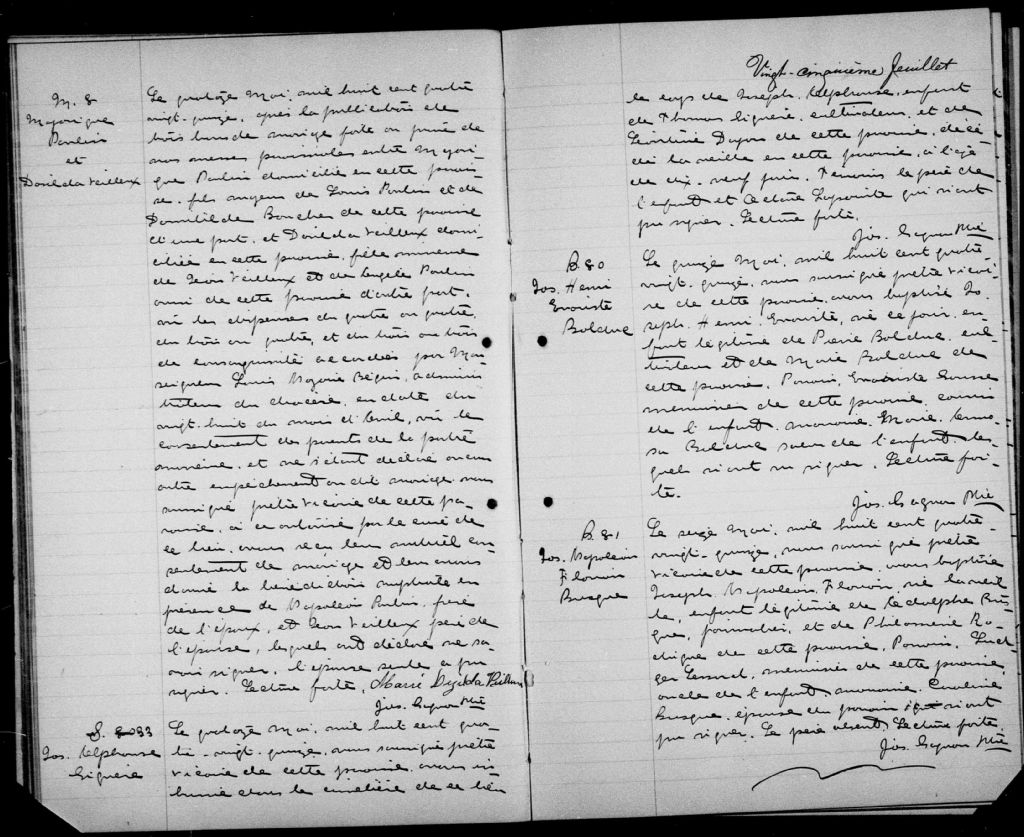 M. 8
Majorique
Poulin
et
Dorilda Veilleux
Le quatorze Mai, mil huit cent quatre
vingt-quinze, après la publication de
trois bans de mariage faite au prône de
nos messes paroissiales entre Majori-
que Poulin domicilié en cette parois-
se, fils majeur de Louis Poulin et de
Domitilde Boucher de cette paroisse
d'une part, et Dorilda Veilleux domi-
ciliée en cette paroisse, fille mineure
de Jean Veilleux et de Angèle Poulin
aussi de cette paroisse d'autre part,
vu les dispenses du quatre au quatre,
du trois au quatre, et du trois au trois
de consanguinité accordées par Mon-
seigneur Louis Nazaire Bégin, adminis-
trateur du diocèse, en date du
vingt-huit du mois d'Avril, vu le
consentement des parents de la partie
mineure, et ne s'étant déclaré aucun
autre empêchement au dit mariage, nous
soussigné prêtre vicaire de cette pa-
roisse, à ce autorisé par le curé de
ce lieu, avons reçu leur mutuel con-
sentement de mariage et leur avons
donné la bénédiction nuptiale en
présence de Napoléon Poulin, frère
de l'époux, et Jean Veilleux père de
l'épouse, lesquels ont déclaré ne sa-
voir signer, l'épouse seule a pu
signer. Lecture faite. Marie
Jos. Gagnon Ptre
S. 33
Jos. Alphonse
Giguère
Le quatorze Mai, mil huit cent qua-
tre-vingt-quinze, nous soussigné prêtre
vicaire de cette paroisse, avons in-
humé dans le cimetière de ce lieu
Vingt-cinquième feuillet
le corps de Joseph, Alphonse, enfant
de Thomas Giguère, cultivateur, et de
Léontine Doyon de cette paroisse, décé-
dé la veille en cette paroisse, à l'âge
de dix-neuf jours. Témoins le père de
l'enfant et Lapointe qui n'ont
pu signer. Lecture faite.
Jos. Gagnon Ptre
B. 80
Jos. Henri
Evariste
Bolduc
Le quinze Mai, mil huit cent quatre
vingt-quinze, nous soussigné prêtre vicai-
re de cette paroisse, avons baptisé Jo-
seph, Henri, Evariste, né ce jour, en-
fant légitime de Pierre Bolduc, cul-
tivateur et de Marie Bolduc de
cette paroisse. Parrain, Evariste
menuisier de cette paroisse, cousin
de l'enfant, marraine, Marie, Anna-
sa Bolduc soeur de l'enfant, les-
quels n'ont su signer. Lecture fai-
te.
Jos. Gagnon Ptre
B. 81
Jos. Napoléon
Florian
Busque
Le seize Mai, mil huit cent quatre
vingt-quinze, nous soussigné prêtre
vicaire de cette paroisse, avons baptisé
Joseph, Napoléon, Florian, né la veil-
le, enfant légitime de Adolphe Bus-
que, journalier, et de Philomène Ro-
drigue de cette paroisse. Parrain,
Lessard, menuisier de cette paroisse,
oncle de l'enfant, marraine, Caroline
Busque, épouse du parrain n'ont
pu signer. Le père absent. Lecture faite.
Jos. Gagnon Ptre